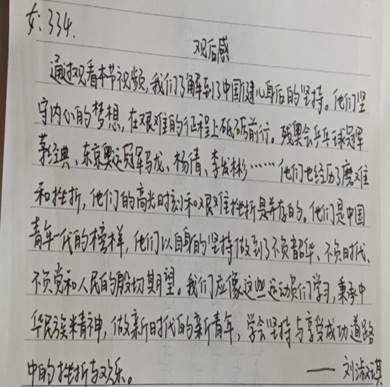 女:334.
观后感
通过观看本节视频,我们了解到了中国健儿身后的坚持。他们坚
守内心的梦想,在艰难的征程上砥砺前行。残奥会乒乓球冠军
茅经典、东京奥运冠军马龙、杨倩、李发彬……他们也经历磨难
和挫折,他们的高光时刻和艰难挫折是并存的。他们是中国
青年一代的榜样,他们以自身的坚持做到了不负韶华、不负时代、
不负党和人民的殷切期望。我们应像这些运动员们学习,秉承中
华民族精神,做新时代的新青年,学会坚持与享受成功道路
中的挫折与欢乐。
——刘淇